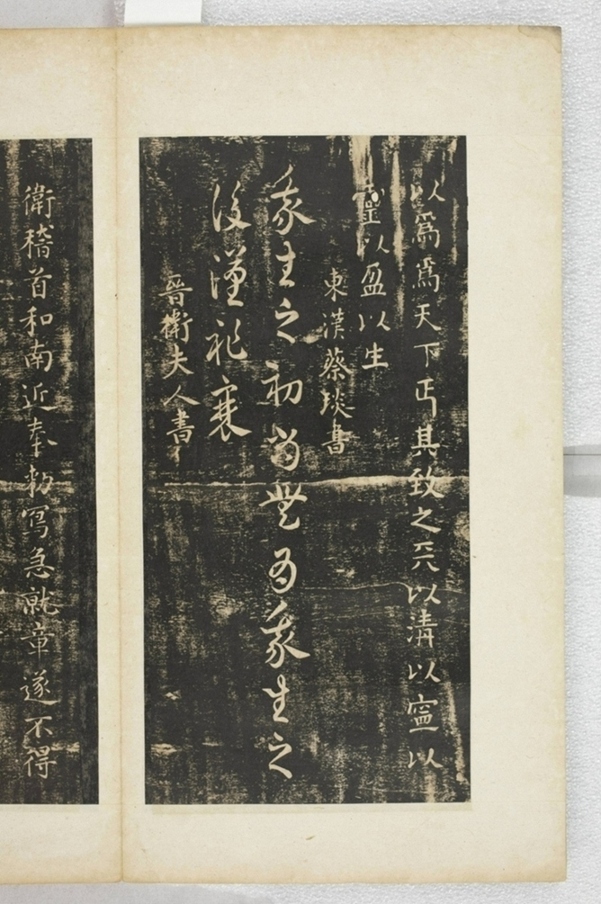 以爲爲天下丏其致之兲以清以寍以
霝以盈以生
東漢蔡琰書
我生之初尚無為我生之
後漢祚衰
晉衛夫人書
衛稽首和南近奉勅寫急就章遂不得